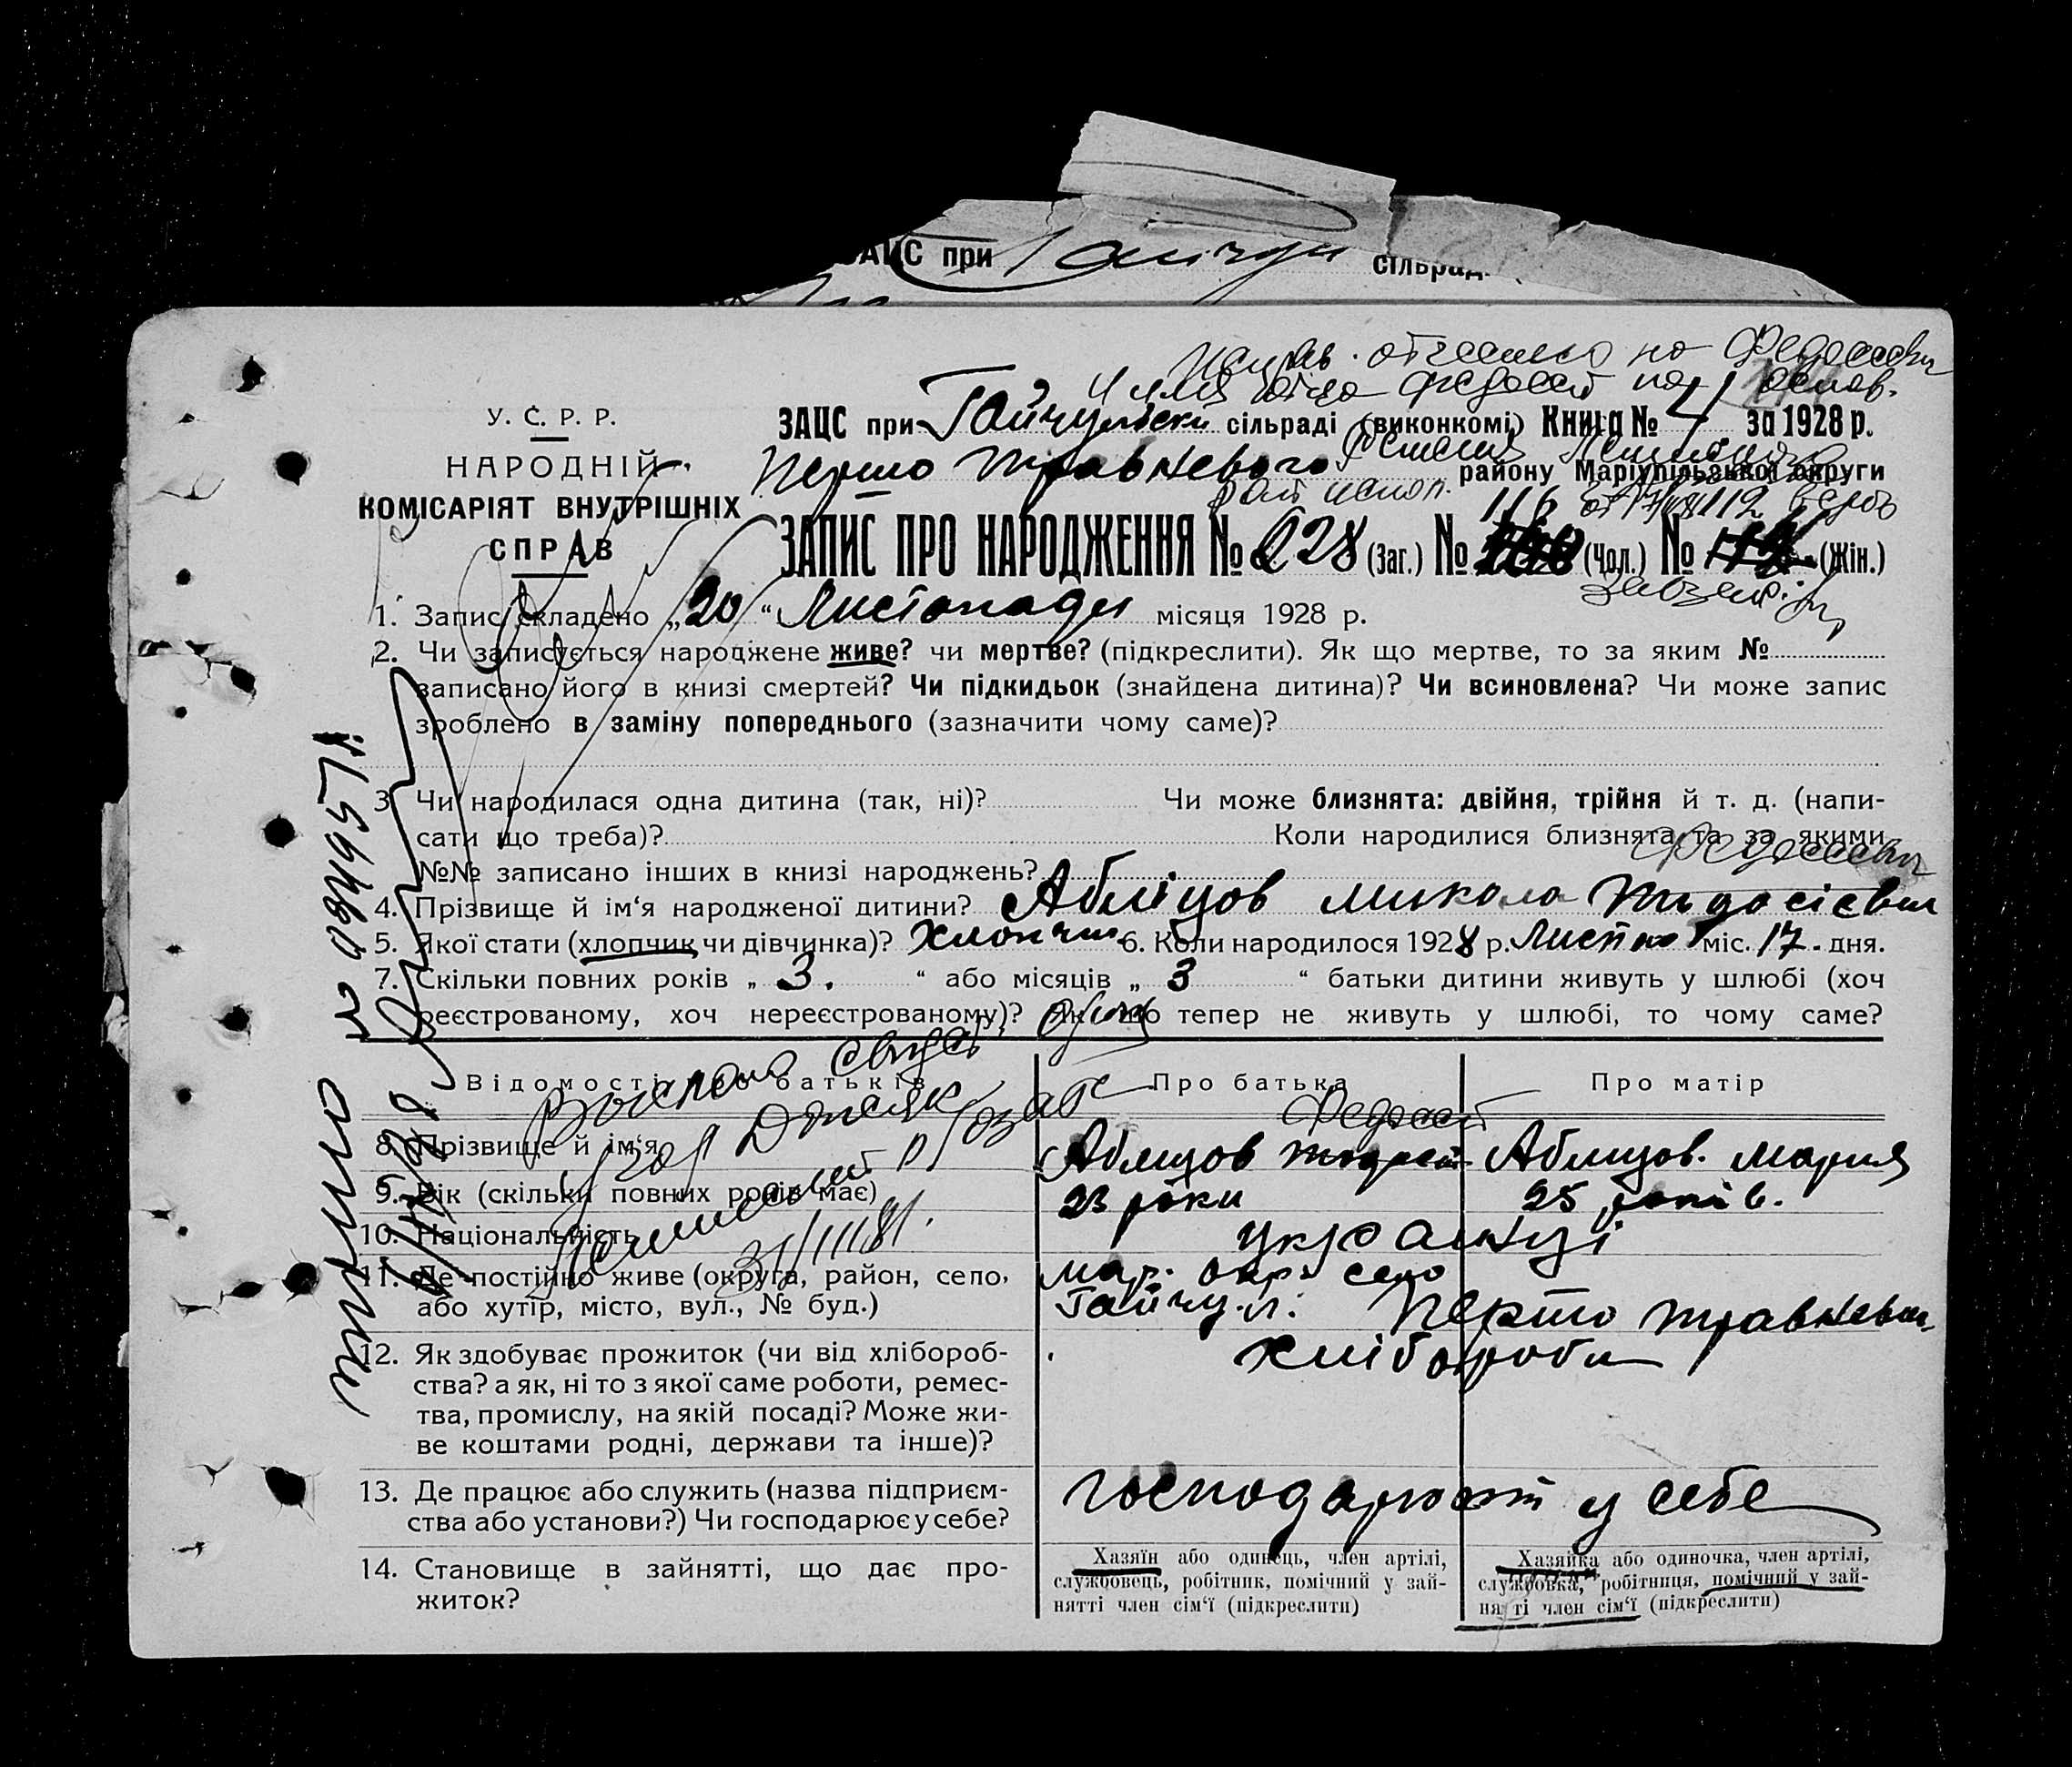 ЗАЦС при Гайчул сільрад.
Исправ. отчество на Федосеевич
и имя отца Федосей на основ.
У. С. Р. Р.
НАРОДНІЙ
КОМІСАРІЯТ ВНУТРІШНІХ
СПРАВ
ЗАЦС при Гайчульскій сільраді (виконкомі) Книга № за 1928 р.
решения
Першо травневого району Маріупільської округи
рай испол.
116
ЗАПИС ПРО НАРОДЖЕННЯ № 228 (Заг.) № (Чол.) № (Жін.)
1. Запис складено „20“ Листопада місяця 1928 р.
2. Чи записується народжене живе? чи мертве? (підкреслити). Як що мертве, то за яким №
записано його в книзі смертей? Чи підкидьок (знайдена дитина)? Чи всиновлена? Чи може запис
зроблено в заміну попереднього (зазначити чому саме)?
3. Чи народилася одна дитина (так, ні)? Чи може близнята: двійня, трійня й т. д. (напи-
сати що треба)? Коли народилися близнята та за якими
№№ записано інших в книзі народжень?
Федосеевич
4. Прізвище й ім‘я народженої дитини? Абліцов Микола Тодосієвич
5. Якої стати (хлопчик чи дівчинка)? Хлопчик 6. Коли народилося 1928 р. Листоп міс. 17. дня.
7. Скільки повних років „ 3. “ або місяців „ 3 “ батьки дитини живуть у шлюбі (хоч
реєстрованому, хоч нереєстрованому)? Як що тепер не живуть у шлюбі, то чому саме?
Відомості про батьків Про батька Про матір
Федосей
8. Прізвище й ім‘я Аблицов Тодосій Аблицов. Мария
9. Вік (скільки повних років має) 23 роки 25 років.
10. Національність українці
11. Де постійно живе (округа, район, село,
або хутір, місто, вул., № буд.) Мар. окр. село
Гайчул. Першо травневого
12. Як здобуває прожиток (чи від хлібороб-
ства? а як, ні то з якої саме роботи, ремес-
тва, промислу, на якій посаді? Може жи-
ве коштами родні, держави та інше)?
хлібороби
13. Де працює або служить (назва підприєм-
ства або установи?) Чи господарює у себе?
господарюють у себе
14. Становище в зайнятті, що дає про-
житок?
Хазяїн або одинець, член артілі,
службовець, робітник, помічний у зай-
нятті член сім‘ї (підкреслити)
Хазяйка або одиночка, член артілі,
службовка, робітниця, помічний у зай-
нятті член сім‘ї (підкреслити)
31/III 81.